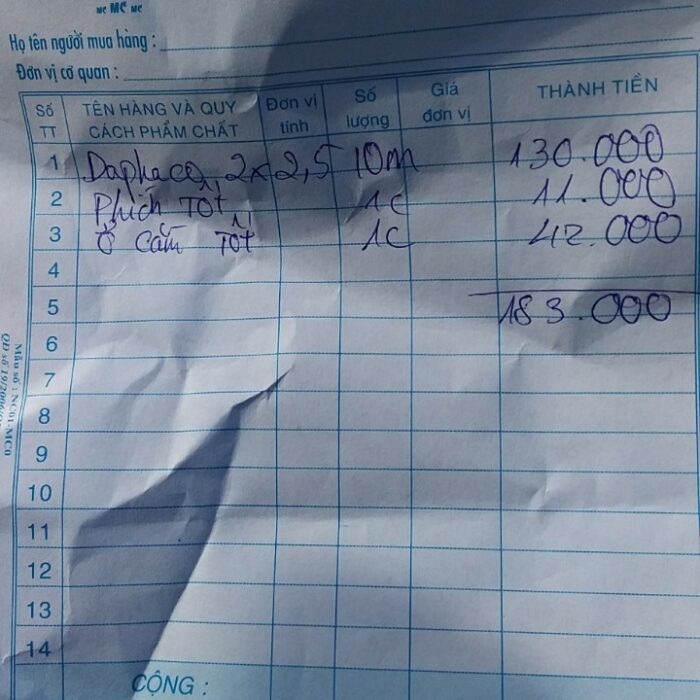 MC MC MC
Họ tên người mua hàng :
Đơn vị cơ quan :
Số TT TÊN HÀNG VÀ QUY CÁCH PHẨM CHẤT Đơn vị tính Số lượng Giá đơn vị THÀNH TIỀN
1 Daphaco 2x2,5 10m 130.000
2 Phích Tốt 1c 11.000
3 Ổ cắm Tốt 1c 42.000
4
5 183.000
6
7
8
9
10
11
12
13
14
CỘNG :
Mẫu số : NC01-MC0
QĐ số 19/2006/